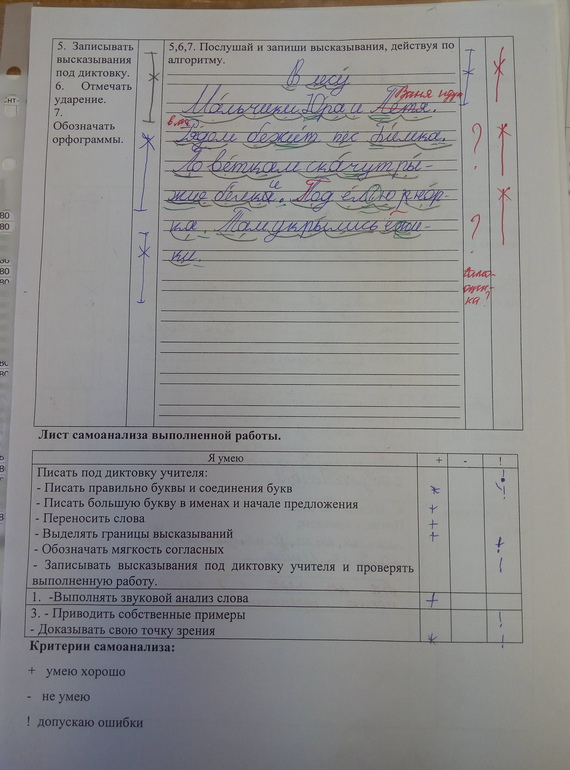 5. Записывать высказывания под диктовку.
6. Отмечать ударение.
7. Обозначать орфограммы.
5,6,7. Послушай и запиши высказывания, действуя по алгоритму.
В лесу
Мальчики Юра и Петя.
Ваня идут
в лес
Рядом бежит пёс Бимка.
По веткам скачут ры-
жие белки. Под ёлкою
ка. Там укрылись
ки.
?
?
Лист самоанализа выполненной работы.
Я умею + - !
Писать под диктовку учителя:
- Писать правильно буквы и соединения букв
- Писать большую букву в именах и начале предложения +
- Переносить слова +
- Выделять границы высказываний +
- Обозначать мягкость согласных !
- Записывать высказывания под диктовку учителя и проверять !
выполненную работу.
1. -Выполнять звуковой анализ слова +
3. - Приводить собственные примеры !
- Доказывать свою точку зрения !
Критерии самоанализа:
+ умею хорошо
- не умею
! допускаю ошибки